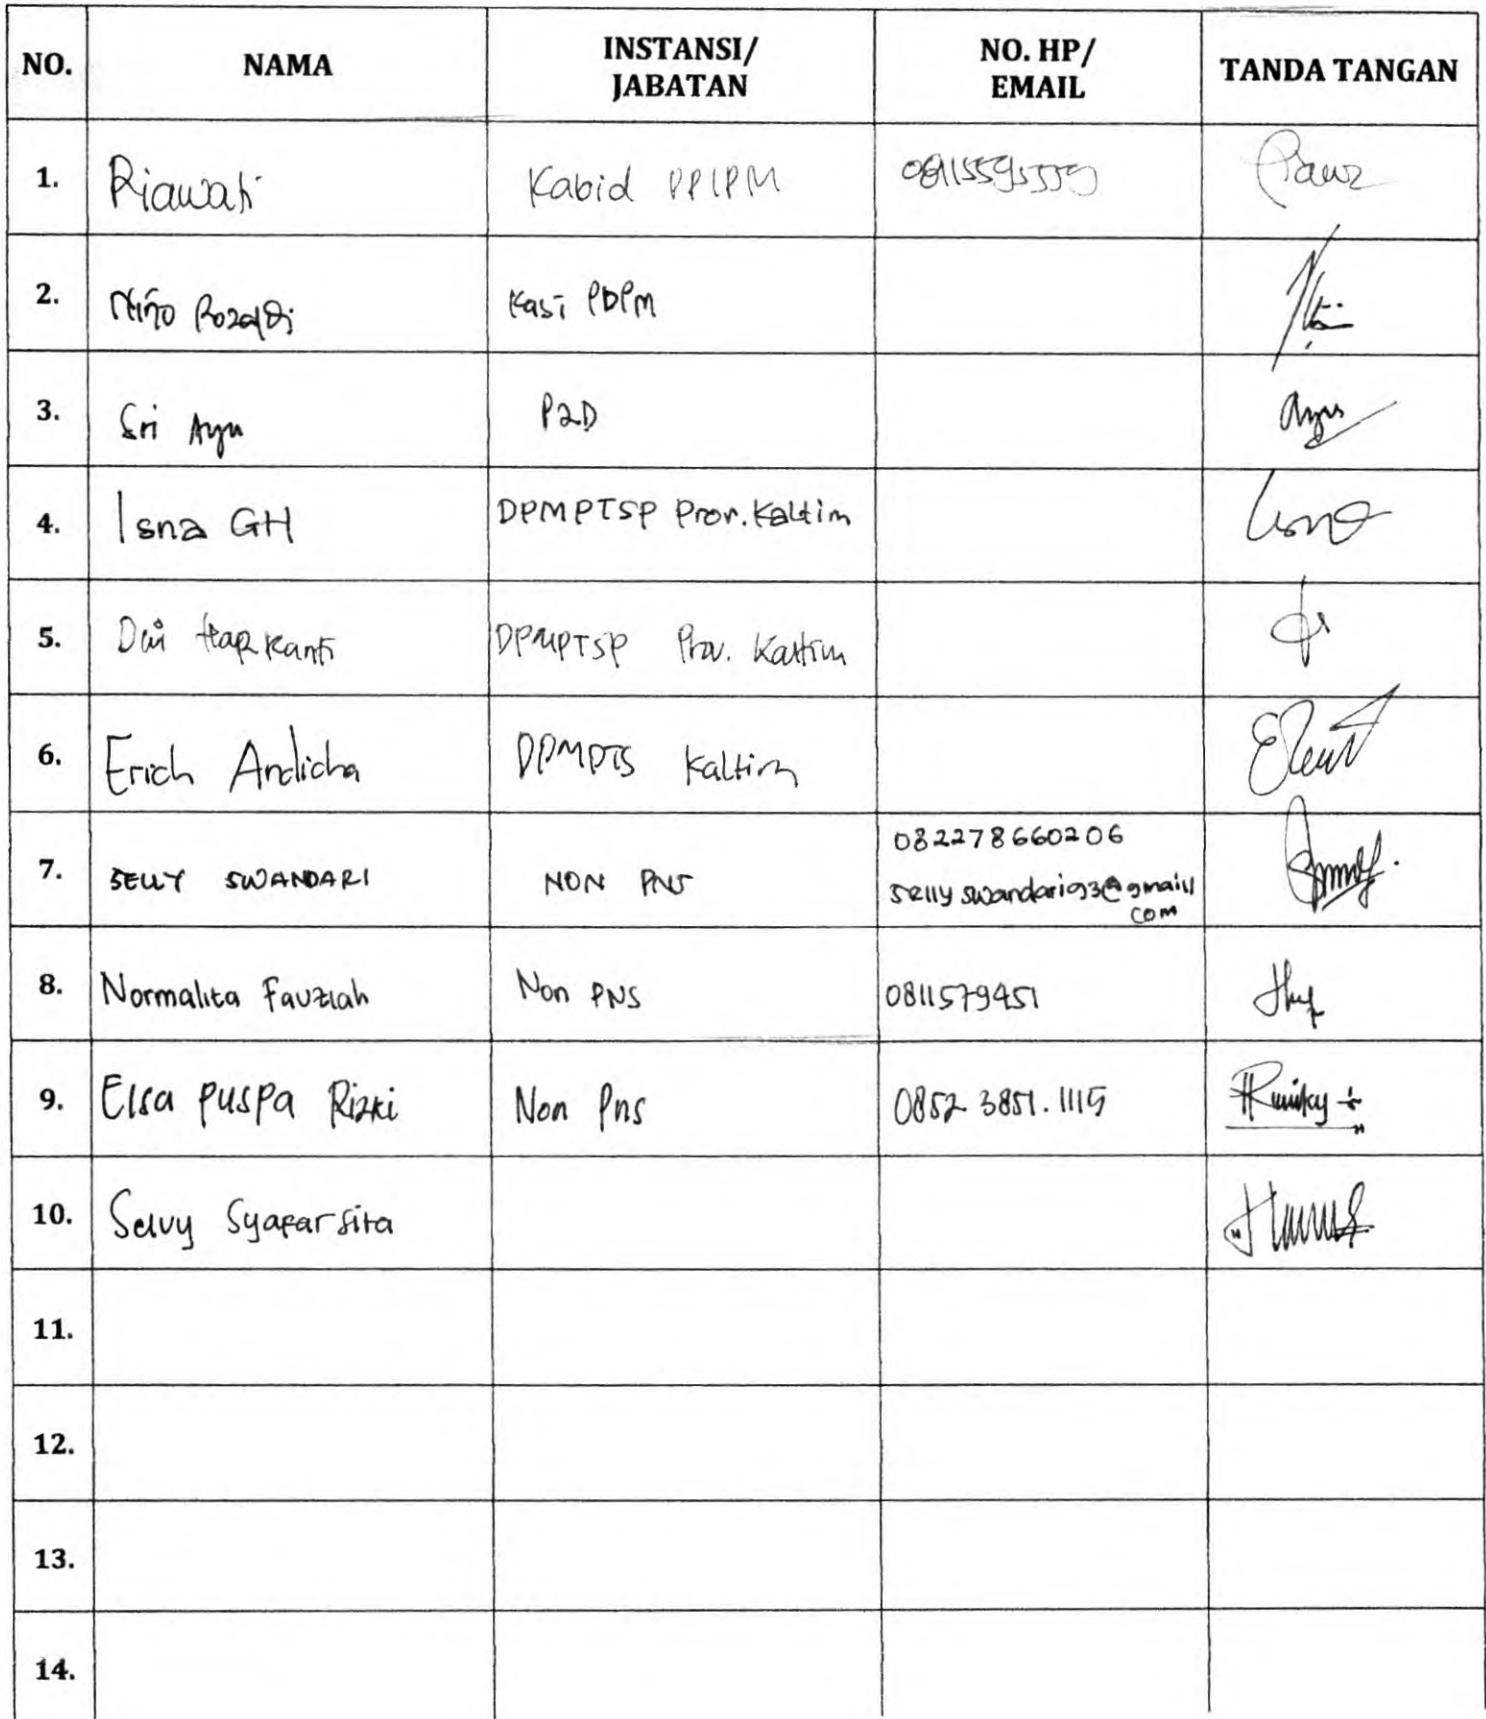 NO. NAMA INSTANSI/ JABATAN NO. HP/ EMAIL TANDA TANGAN
1. Riawati Kabid PPIPM
2. Nino Kasi PDPM
3. Sri Ayu P2D Ayu
4. Isna GH DPMPTSP Prov. Kaltim Isna
5. DPMPTSP Prov. Kaltim
6. Erich Andicha DPMPTS Kaltim
7. SELLY SWANDARI NON PNS 082278660206
selly swandari93@gmail
com
8. Normalita Fauziah Non PNS 0811579451
9. Elsa Puspa Rizki Non Pns 0852.3851.1115
10. Selvy Syafarsita
11.
12.
13.
14.